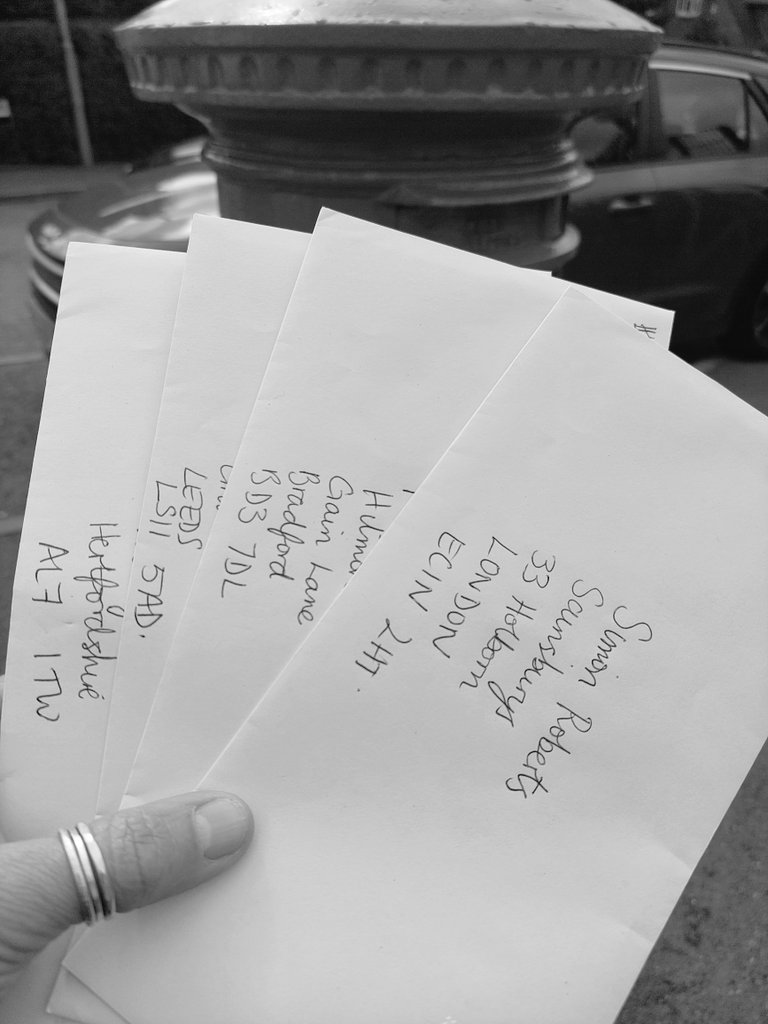 Simon Roberts
Sainsburys
33 Holborn
LONDON
EC1N 2HT.
Gain Lane
Bradford
BD3 7DL
LEEDS
LS11 5AD.
Hertfordshire
AL7 1TW